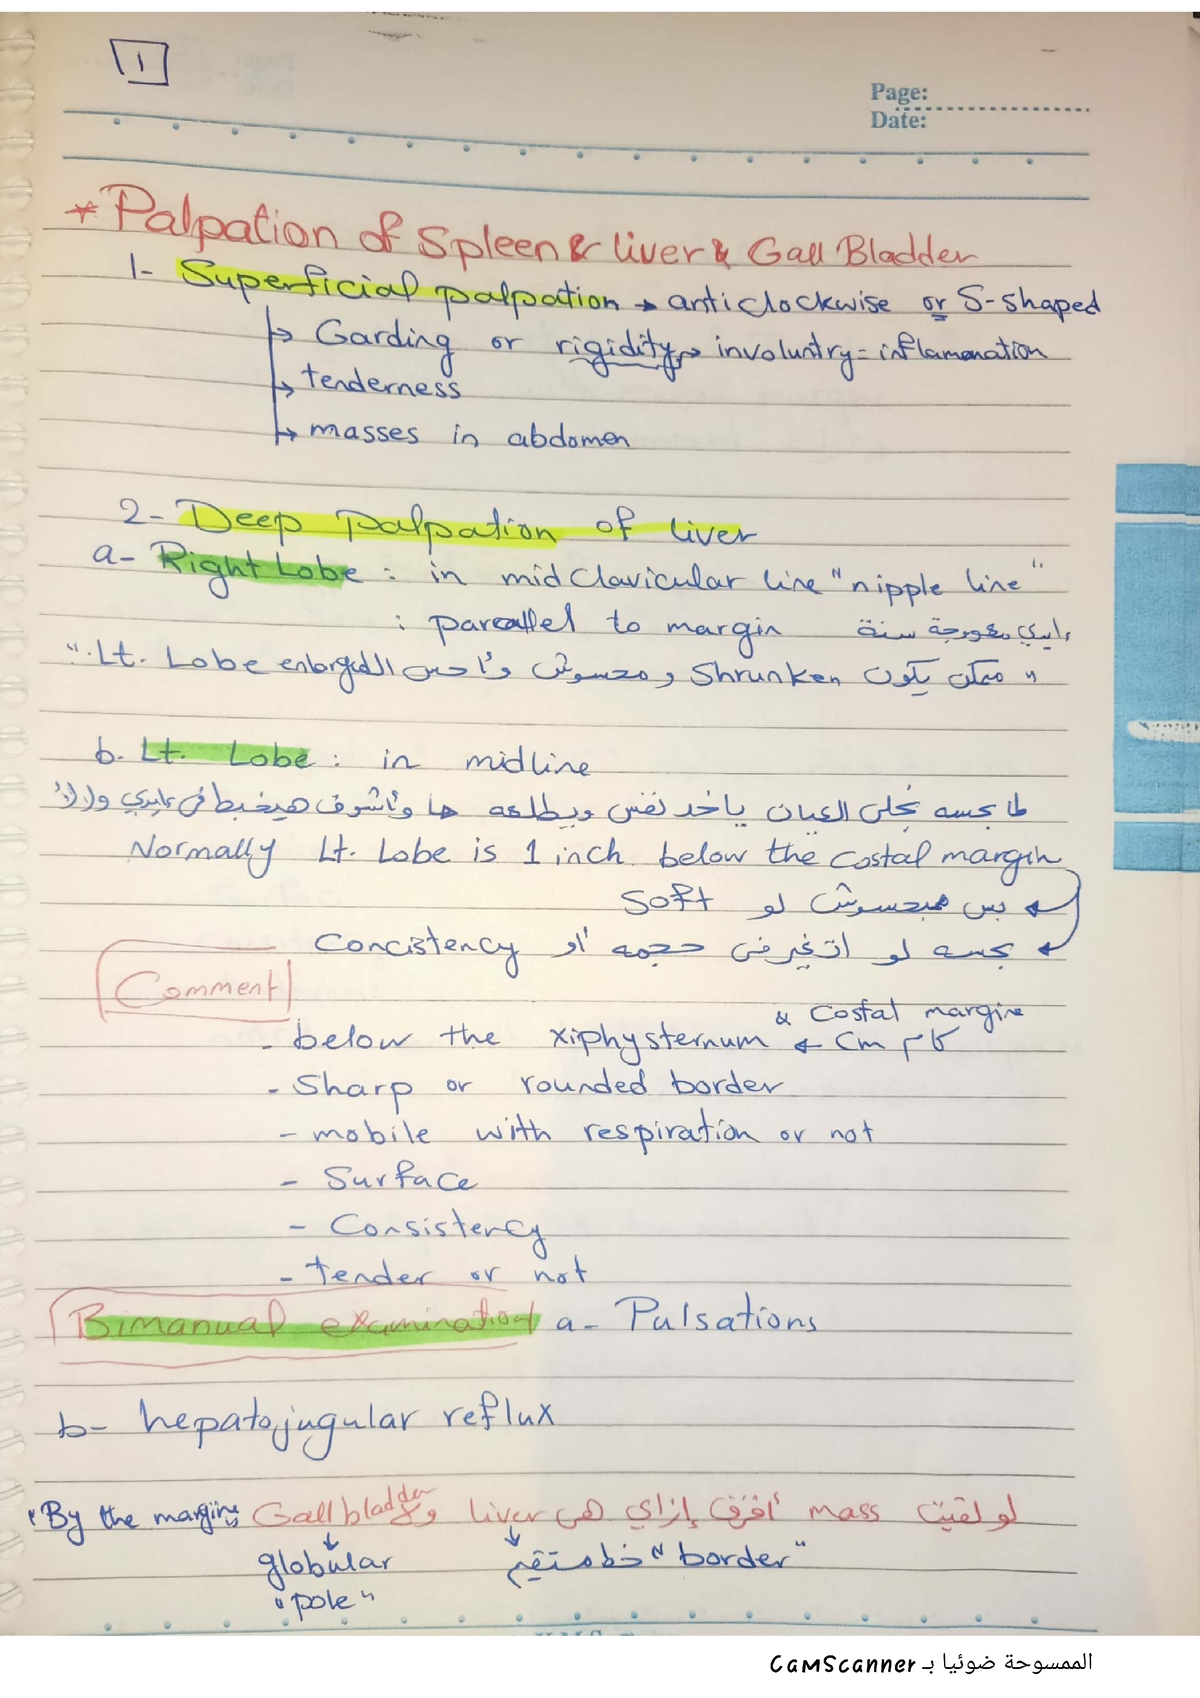 1
Page:
Date:
* Palpation of Spleen & liver & Gall Bladder
1- Superficial palpation → anticlockwise or S-shaped
→ Garding or rigidity → involuntry = inflamenation
→ tenderness
→ masses in abdomen
2- Deep palpation of liver
a- Right Lobe : in midClavicular line "nipple line"
: parcallel to margin وايدي معووجة سنة
" ممكن يكون Shrunken ومحسوش وأحس الـ Lt. Lobe enlarged "
b. Lt. Lobe : in midline
لما بجسه بخلي العيان ياخد نفس ويطلعه ها وأشوف هيخبط في إيدي ولا لأ
Normally Lt. Lobe is 1 inch below the costal margin
← بس مبحسوش لو Soft
← بحسه لو اتغير في حجمه أو Concistency
Comment
- below the xiphysternum & Costal margine ← Cm كام
- Sharp or rounded border
- mobile with respiration or not
- Surface
- Consistency
- tender or not
Bimanual examination a- Pulsations
b- hepatojugular reflux
لو لقيت mass أفرق إزاي هي liver و Gall bladder "By the margins"
خط مستقيم "border" globular
"pole"
الممسوحة ضوئيا بـ CamScanner